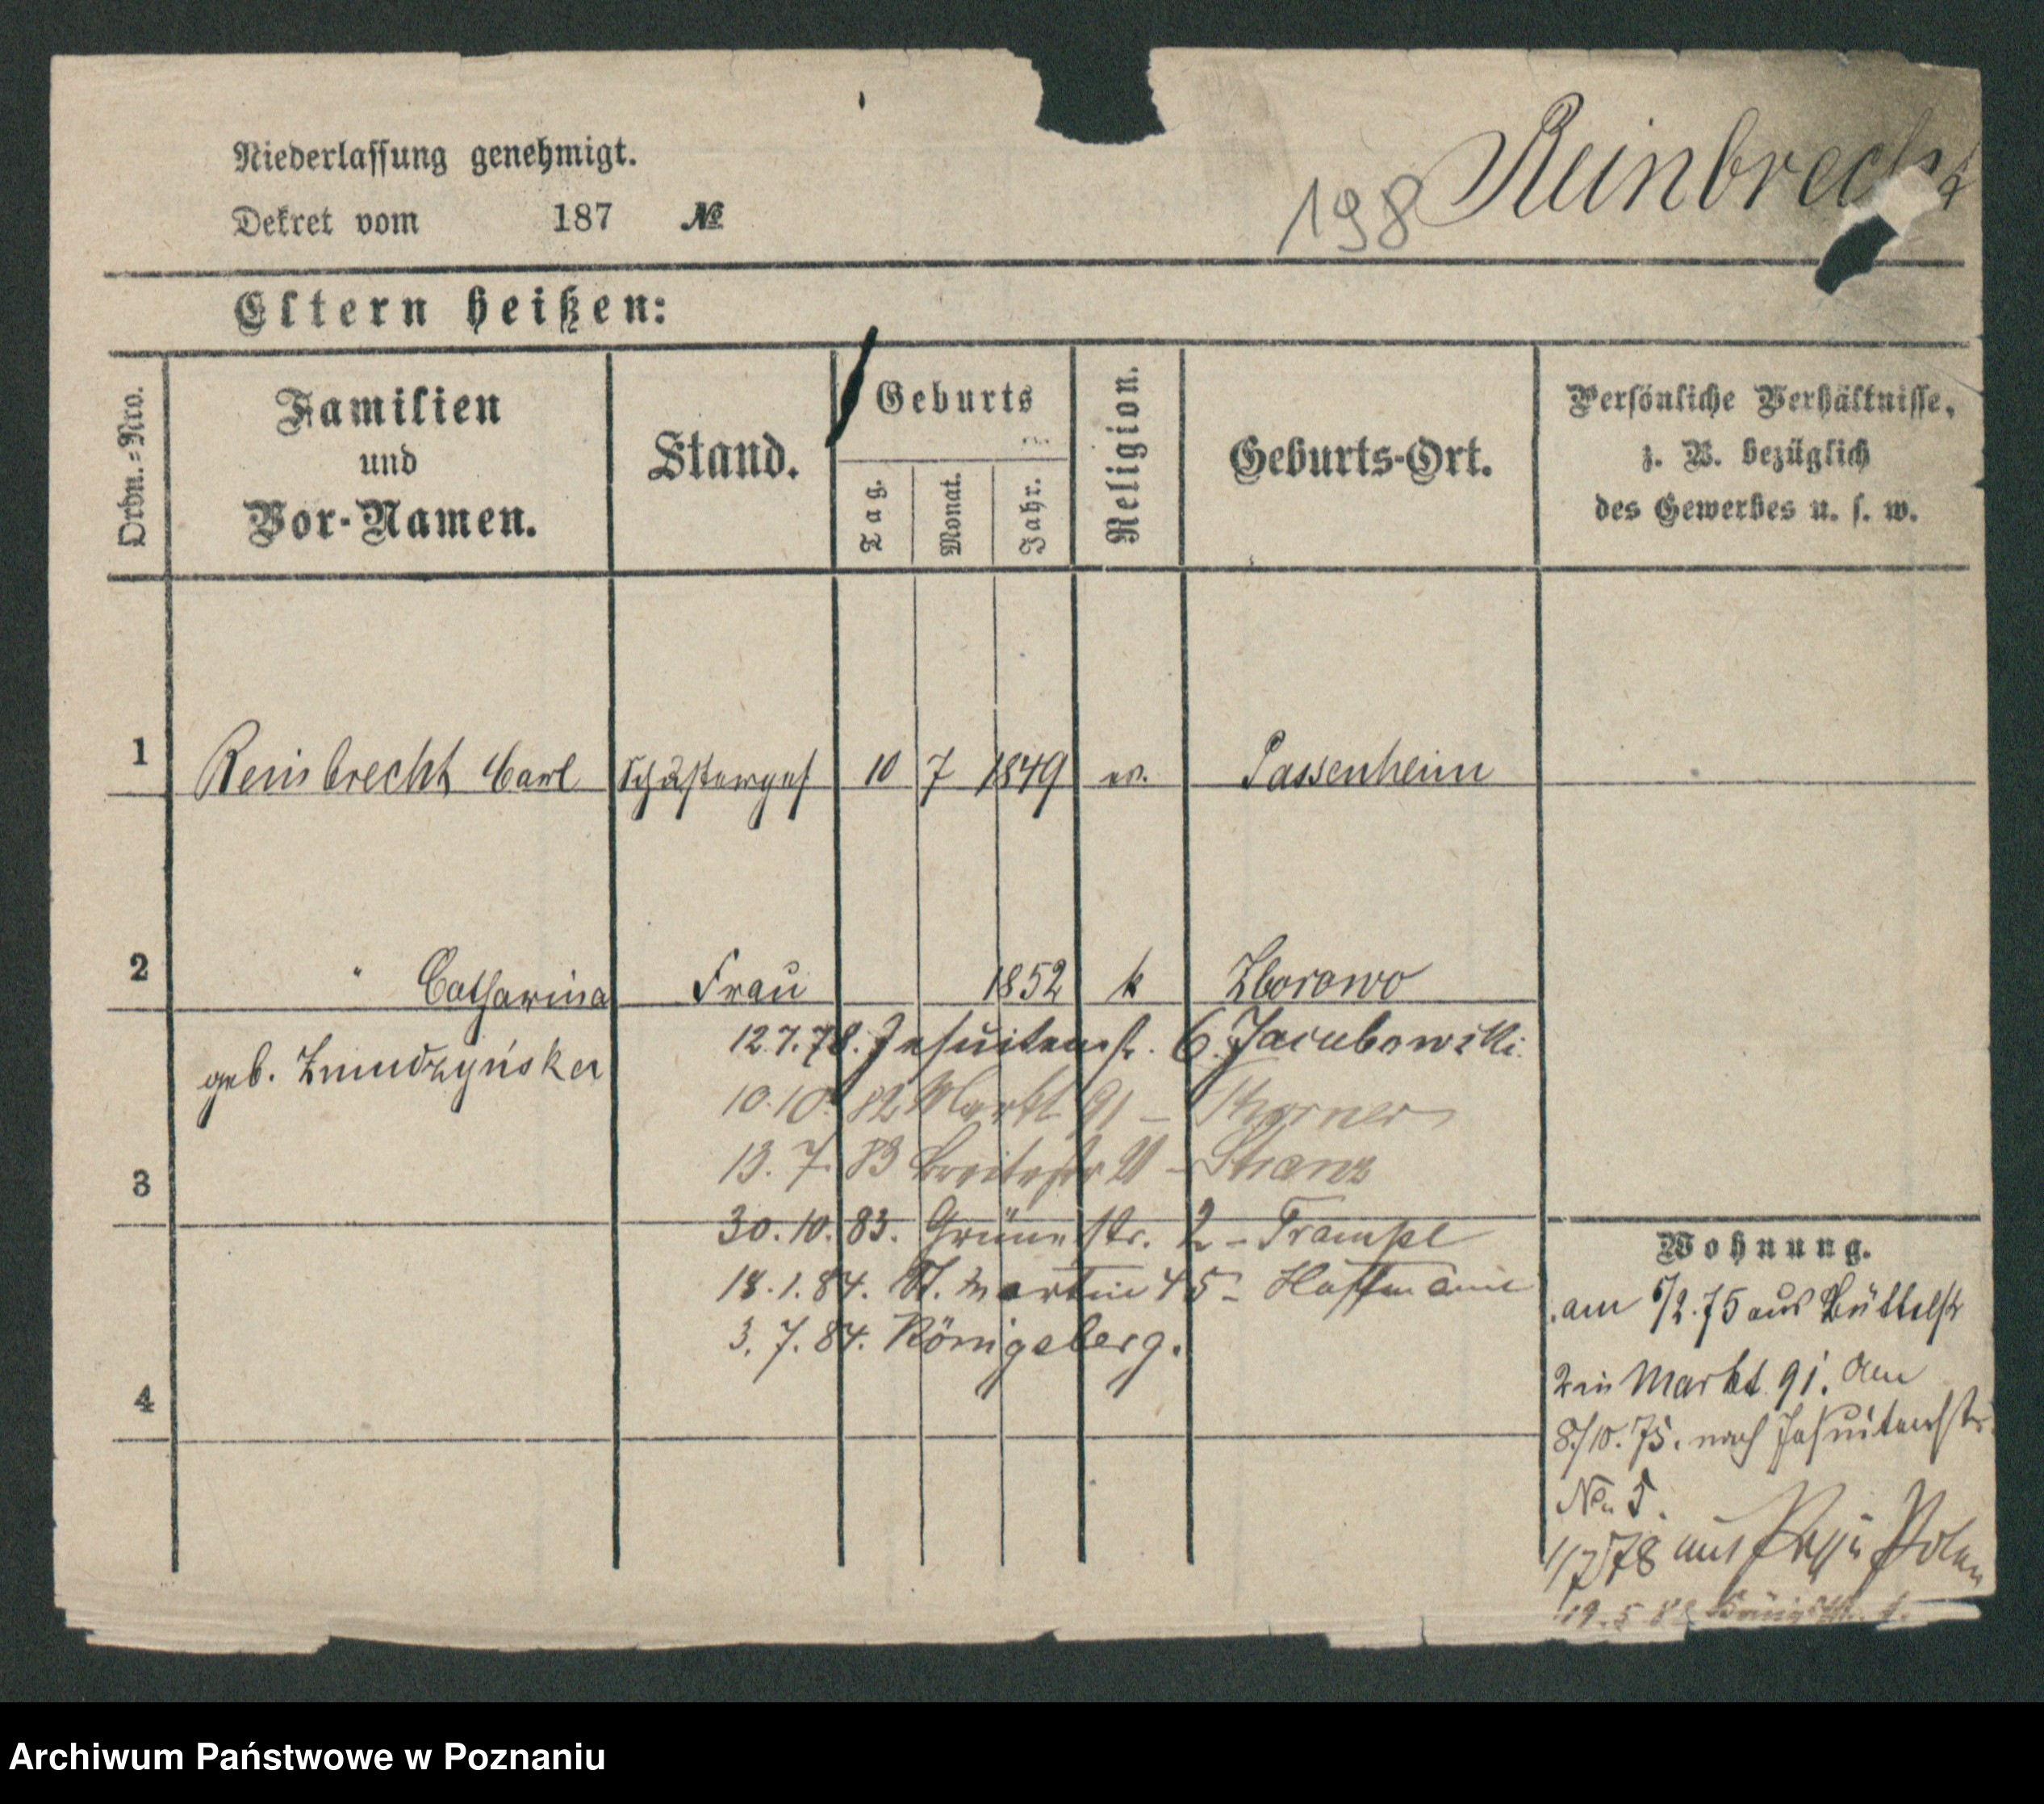 Niederlassung genehmigt.
Dekret vom 187 №
198 Reinbrecht
Eltern heißen:
Ordn.=Nro.
Familien
und
Vor-Namen.
Stand.
Geburts
Tag.
Monat.
Jahr.
Religion.
Geburts-Ort.
Persönliche Verhältnisse,
z. B. bezüglich
des Gewerbes u. s. w.
1 Reinbrecht Carl Schusterges 10 7 1849 ev. Passenheim
2 " Catharina Frau 1852 k Zborowo
geb. Zmudzyńska
12.7.78. Jesuitenstr. 6. Jacubowski.
10.10. 82 Markt 91 -
13. 7. 83 Breitestr 21 -
3
30.10.83. Grünestr. 2 - Trampel
18.1.84. St. Martin 45 - Hoffmann
3.7.84. Königsberg.
4
Wohnung.
am 6/2.75 aus Büttelstr
2 in Markt 91. den
8/10.75. nach Jesuitenstr
No. 5.
1/7 78 aus Polen
19.5 82 1.
Archiwum Państwowe w Poznaniu